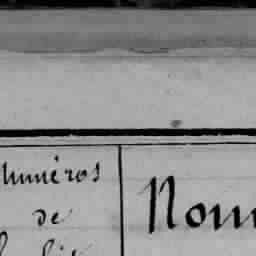 Numéros
de
Nom